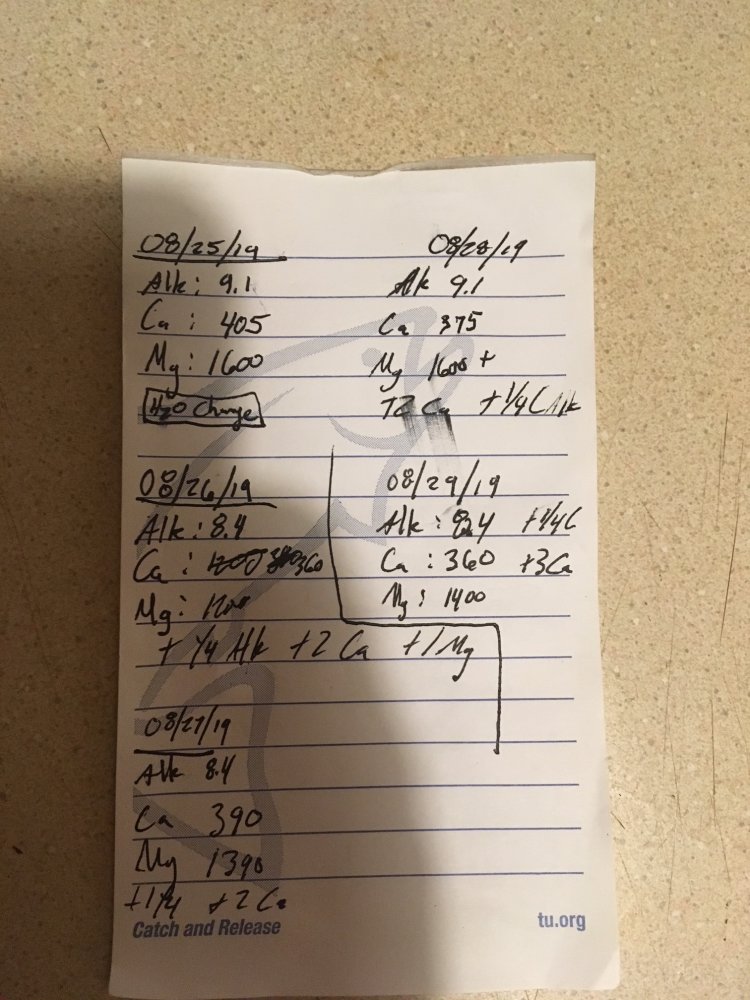 08/25/19
Alk: 9.1
Ca: 405
Mg: 1600
H2O Change
08/26/19
Alk: 8.4
Ca: 360
Mg: 1200
+ 1/4 Alk +2 Ca +1 Mg
08/27/19
Alk 8.4
Ca 390
Mg 1390
+1/4 +2 Ca
08/28/19
Alk 9.1
Ca 375
Mg 1600 +
Ca + 1/4 C Alk
08/29/19
Alk: +1/4 C
Ca: 360 +3 Ca
Mg: 1400
Catch and Release
tu.org